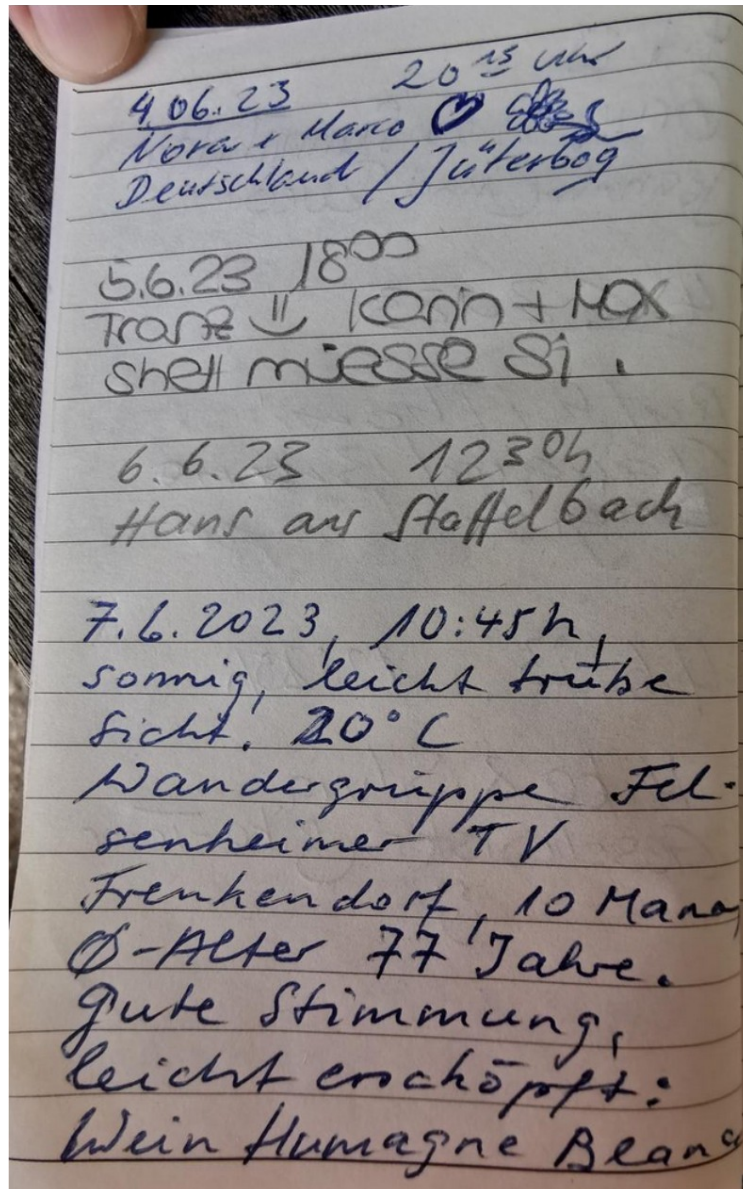 4.06.23 20 15 Uhr
Nora + Marco
Deutschland / Jüterbog
5.6.23 18 00
Franz Karin + Max
shett müesse Si.
6.6.23 12 30 h
Hans aus Staffelbach
7.6.2023, 10:45h,
sonnig, leicht trübe
Sicht. 20°C
Wandergruppe Fel-
senheimer TV
Frenkendorf, 10 Mann,
Ø-Alter 77 Jahre.
Gute Stimmung,
leicht erschöpft:
Wein Humagne Blanc